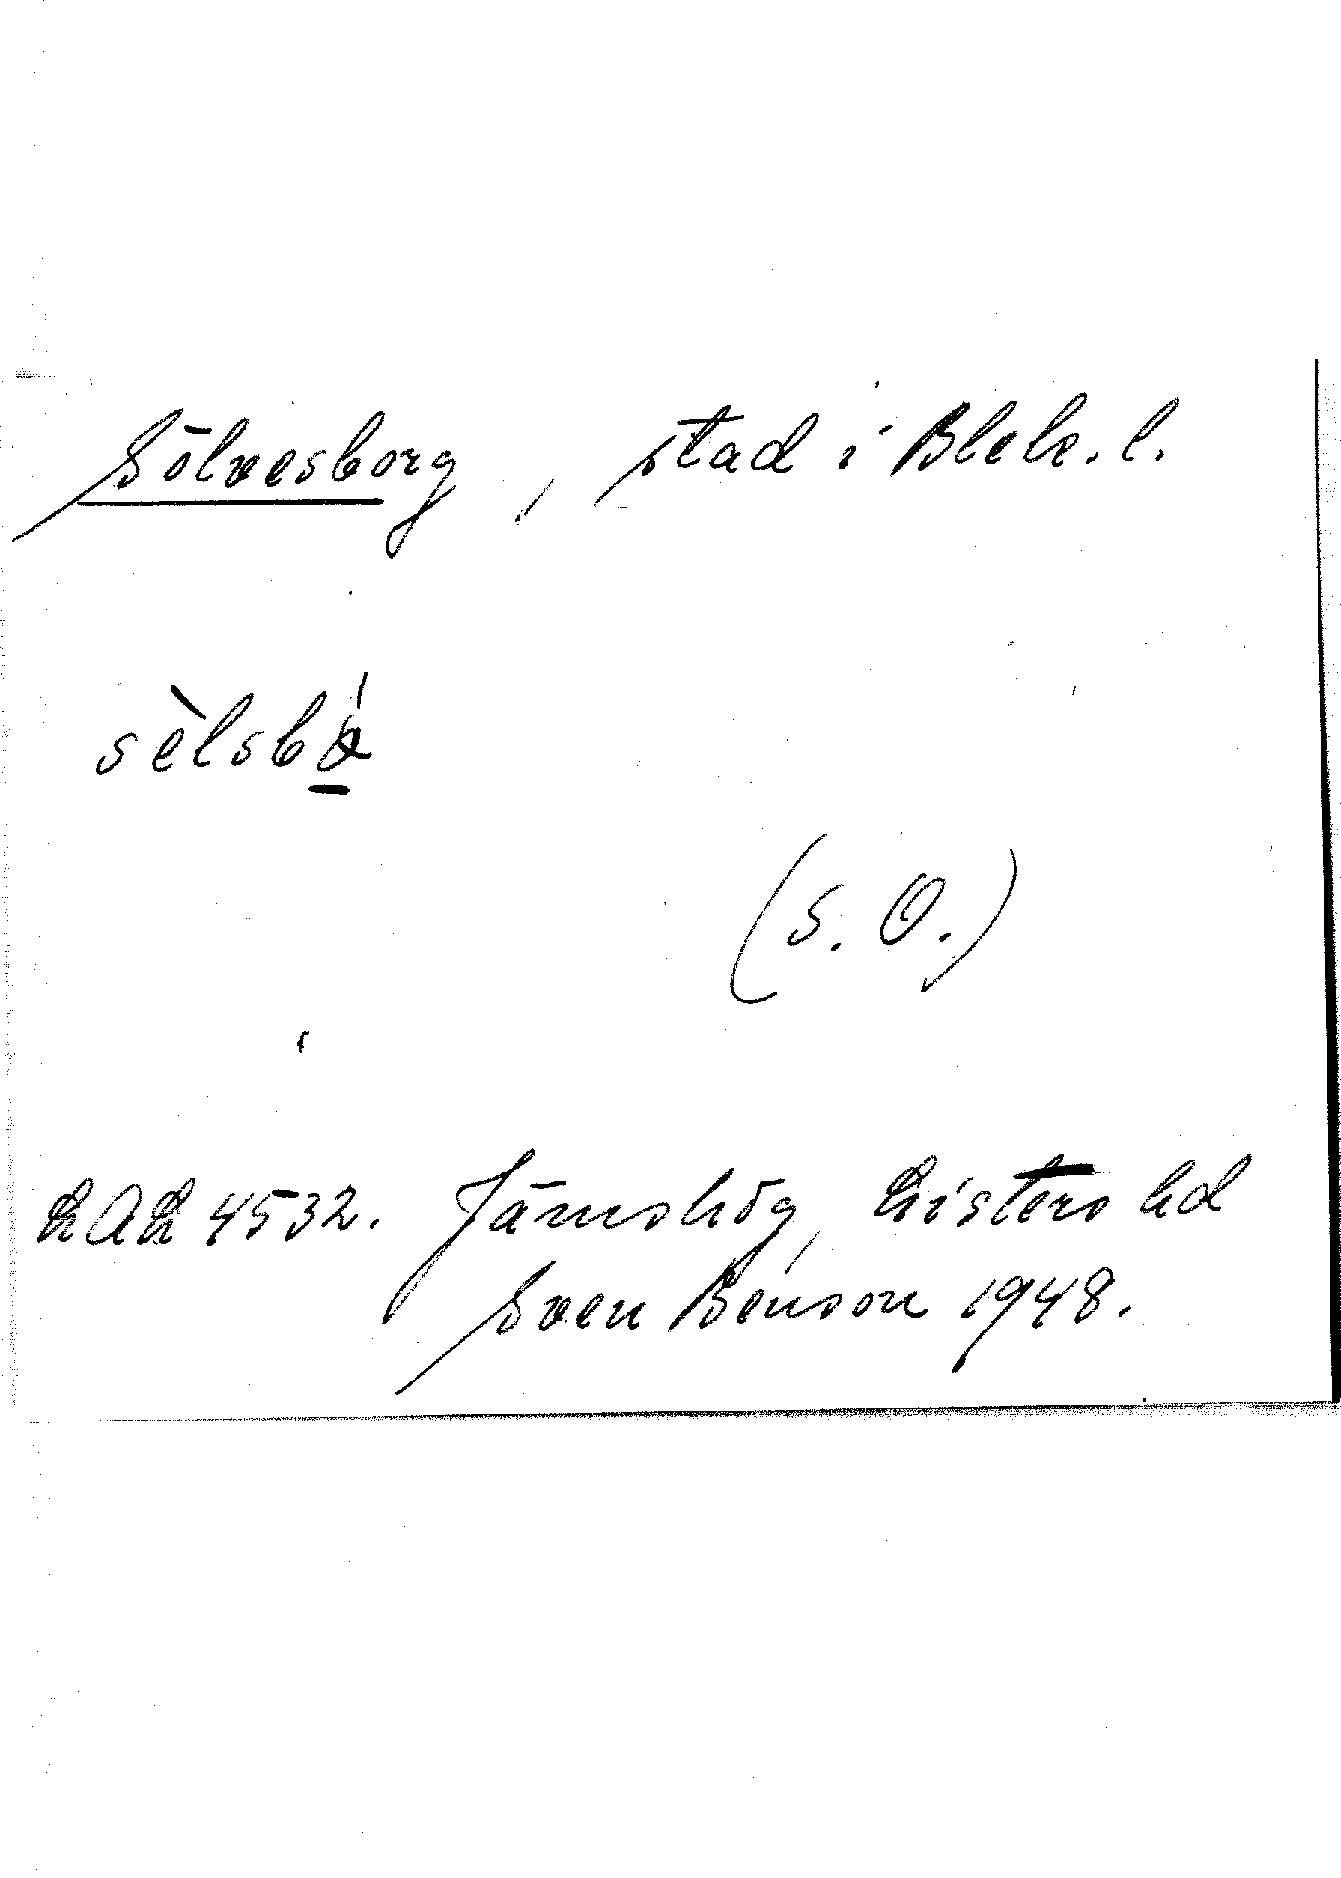 Sölvesborg, stad i Blek. l.
sèlsbá
(s. O.)
LAL 4532. Jämshög, Listers hd
Sven Benson 1948.